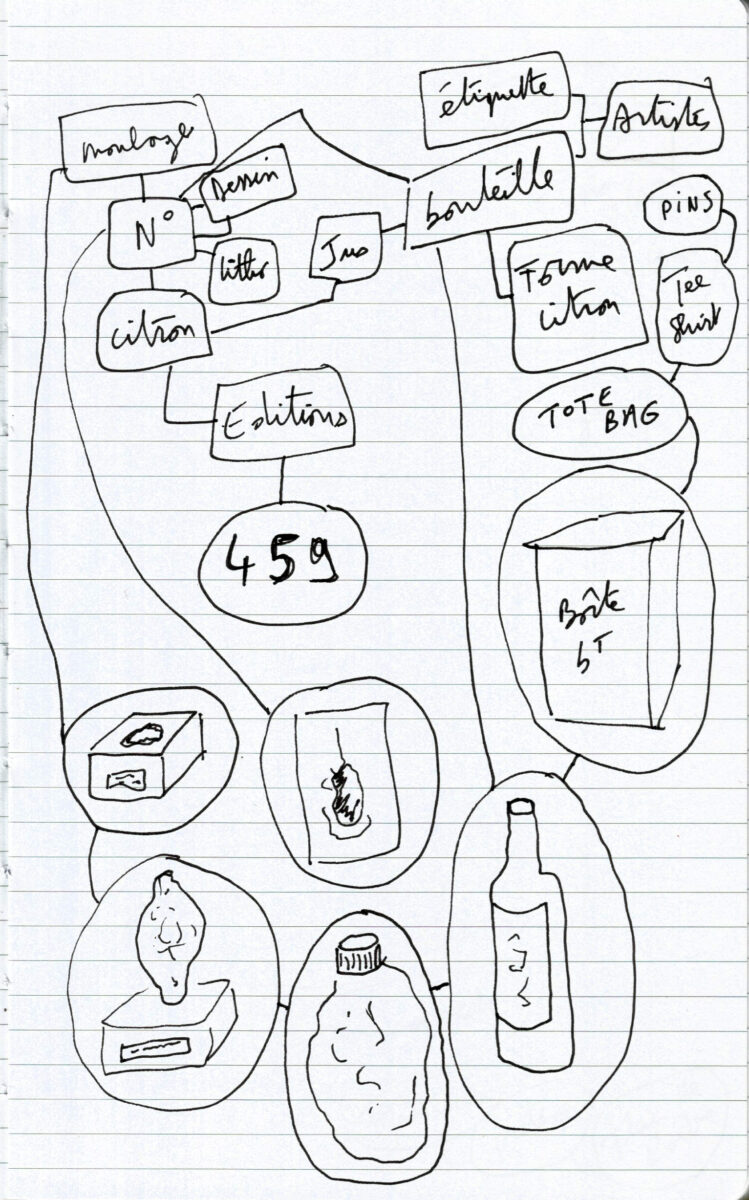 étiquette
Artistes
moulage
Dessin
bouteille
N°
PiNS
Jus
litho
Forme
citron
Tee
shirt
citron
TOTE
BAG
Editions
459
Boîte
bT